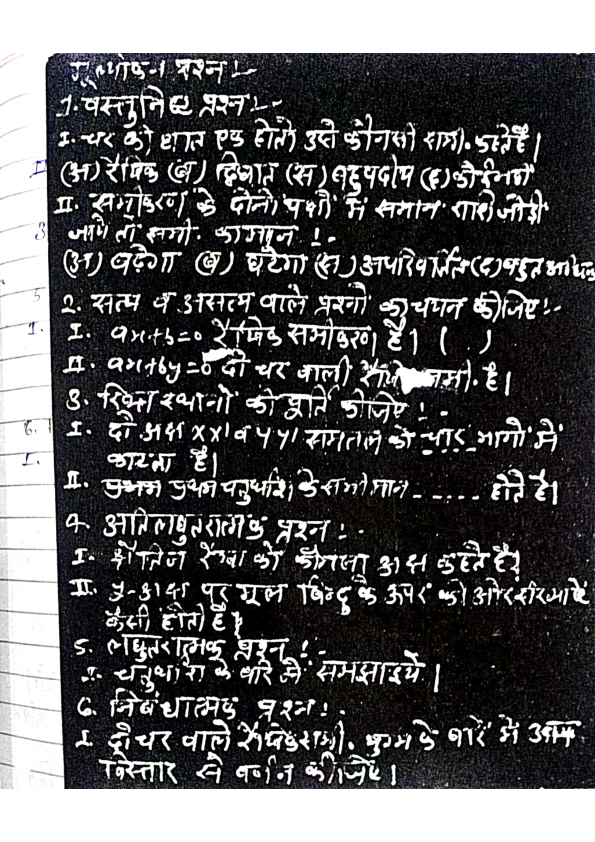 मूल्यांकन प्रश्न :-
1. वस्तुनिष्ठ प्रश्न :-
I. चर की घात एक होती उसे कौनसी समी. कहते है।
(अ) रैखिक (ब) द्विघात (स) बहुपदीय (द) कोई नहीं
II. समीकरण के दोनो पक्षों में समान राशि जोड़ी
जाये तो समी. का मान :-
(अ) बढ़ेगा (ब) घटेगा (स) अपरिवर्तित (द) बहुत
2. सत्य व असत्य वाले प्रश्नों का चयन कीजिए :-
I. ax+b=0 रैखिक समीकरण है। ( )
II. ax+by=0 दो चर वाली समी. है।
3. रिक्त स्थानों की पूर्ति कीजिए :-
I. दो अक्ष XX' व YY' समतल को चार भागों में
काटता है।
II. प्रथम प्रथम चतुर्थांश के सभी मान ------ होते है।
4. अतिलघुतरात्मक प्रश्न :-
I. क्षैतिज रेखा को कौनसा अक्ष कहते है?
II. y-अक्ष पर मूल बिन्दु के ऊपर की ओर
कैसी होती है?
5. लघुतरात्मक प्रश्न :-
I. चतुर्थांश के बारे में समझाइये।
6. निबंधात्मक प्रश्न :-
I. दो चर वाले रैखिक समी. युग्म के बारें में
विस्तार से वर्णन कीजिए।